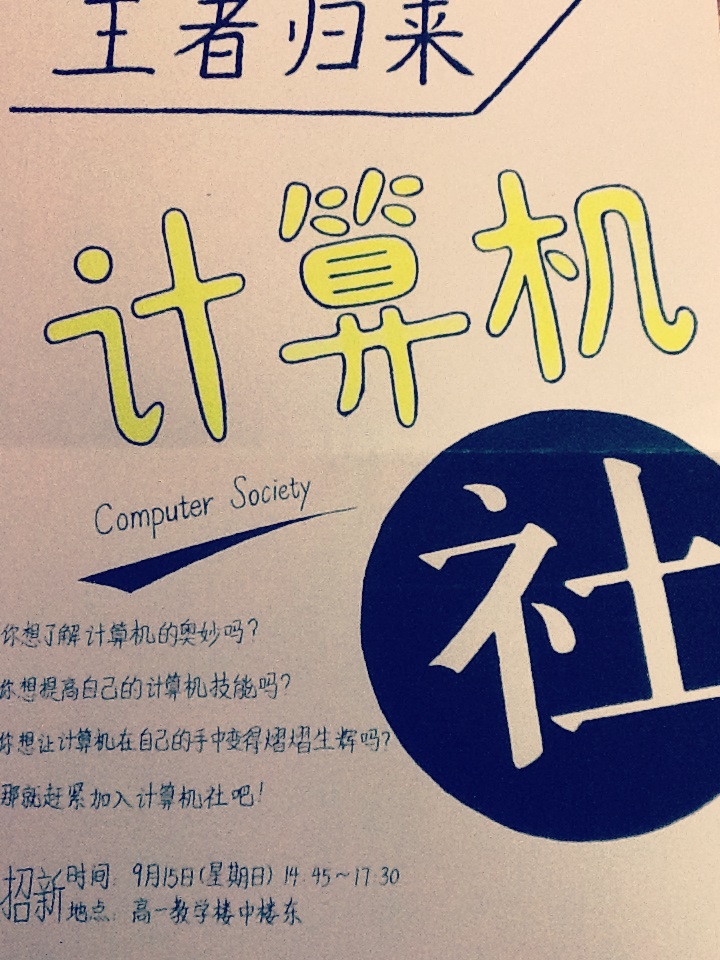 王者归来
计算机
社
Computer Society
你想了解计算机的奥妙吗?
你想提高自己的计算机技能吗?
你想让计算机在自己的手中变得熠熠生辉吗?
那就赶紧加入计算机社吧!
招新
时间: 9月15日(星期日) 14:45~17:30
地点: 高一教学楼中楼东